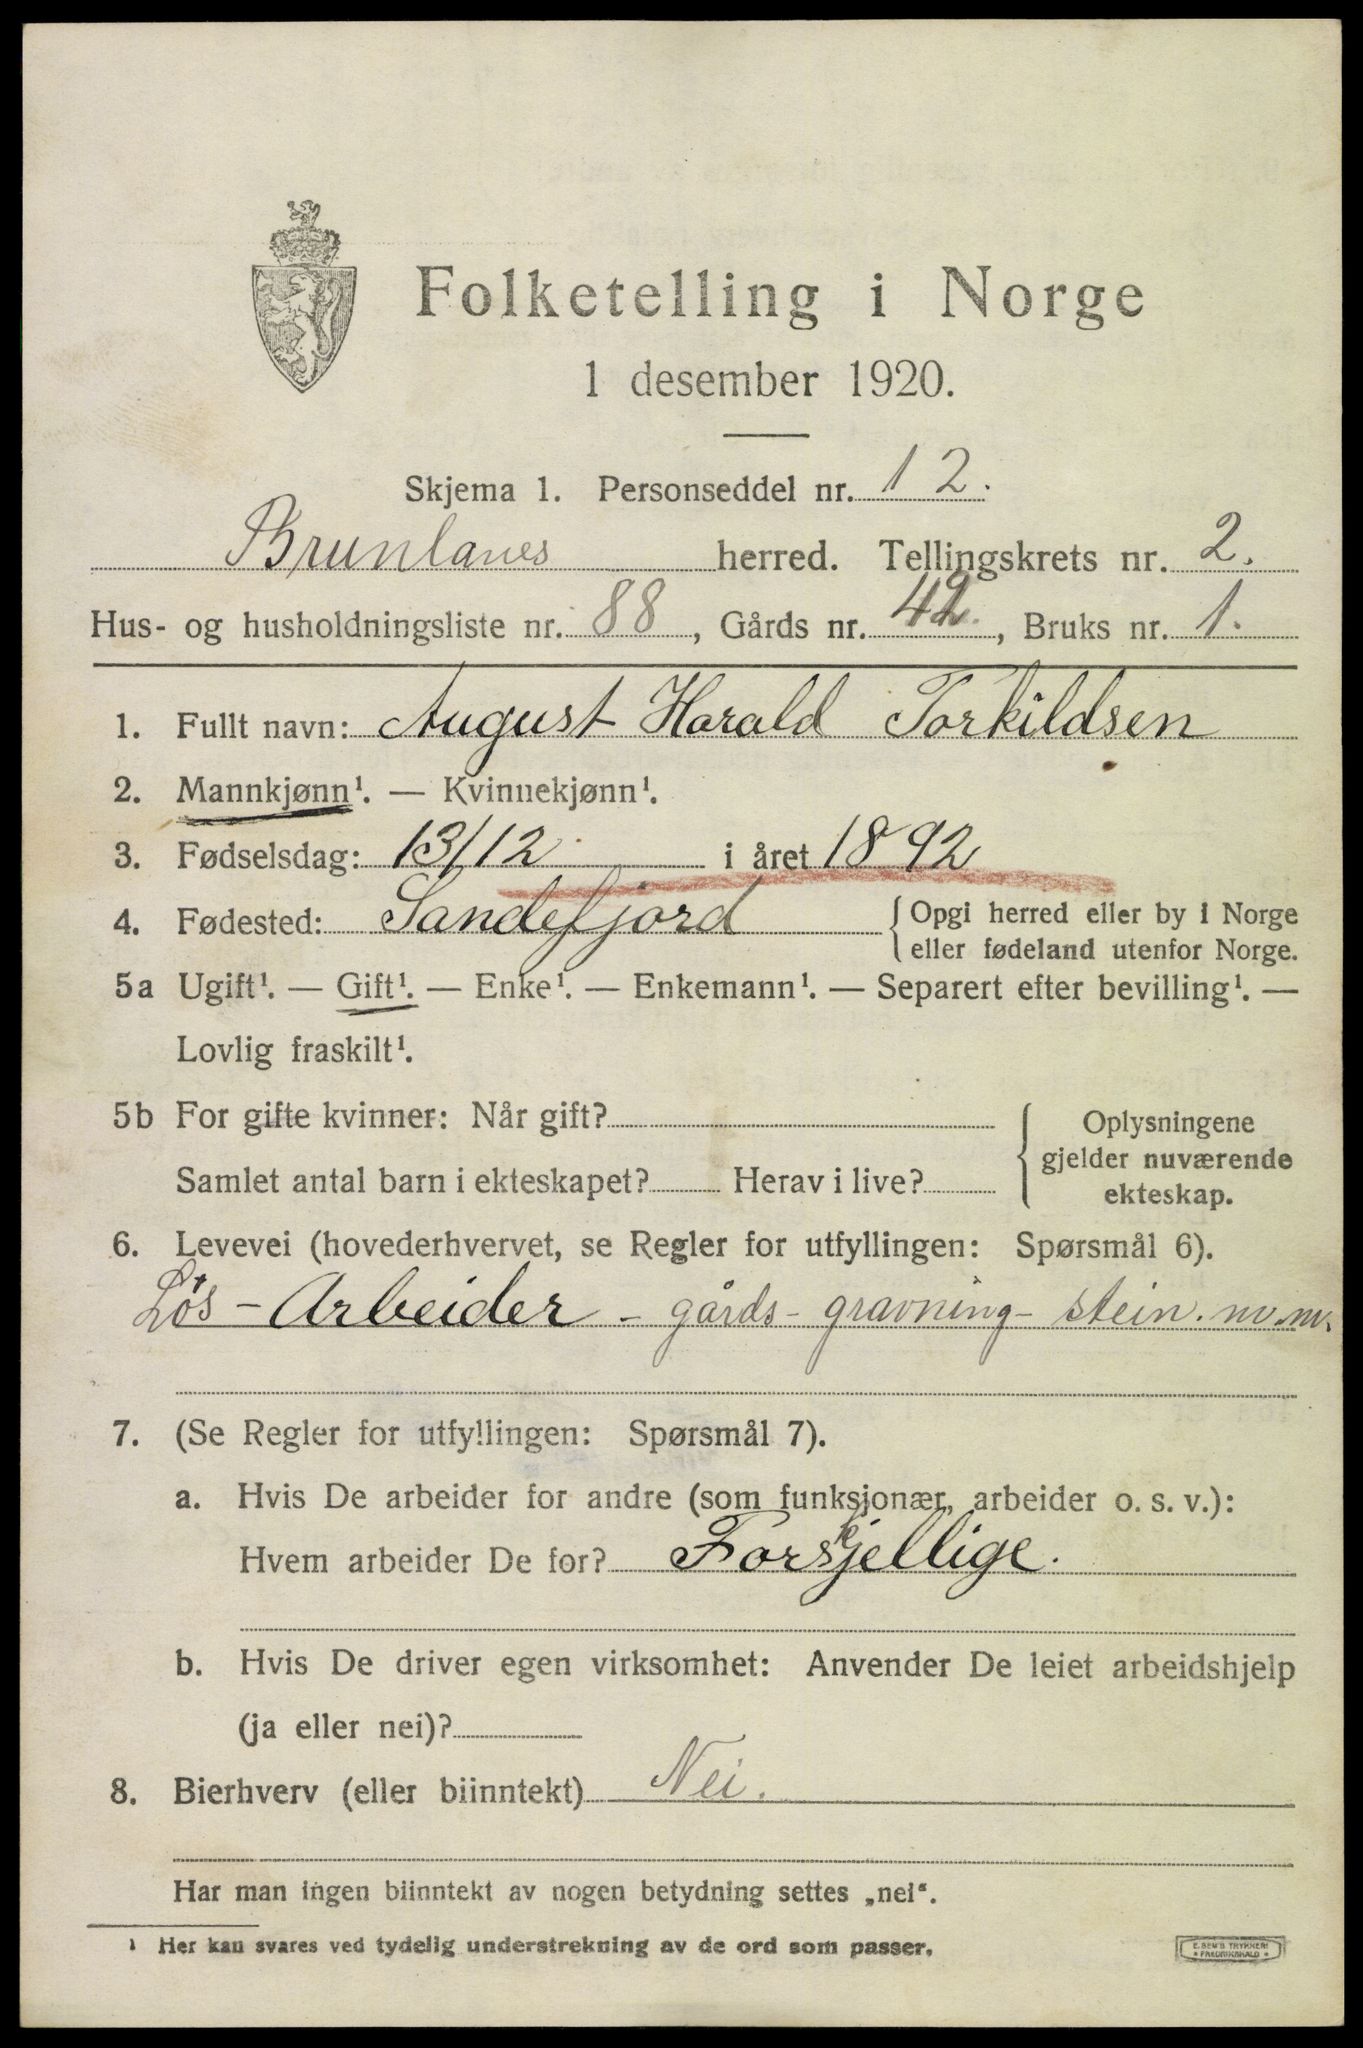 Folketelling i Norge
1 desember 1920.
Skjema 1. Personseddel nr. 12.
Brunlanes herred. Tellingskrets nr. 2.
Hus- og husholdningsliste nr. 88, Gårds nr. 42., Bruks nr. 1.
1. Fullt navn: August Harald Torkildsen
2. Mannkjønn¹. — Kvinnekjønn¹.
3. Fødselsdag: 13/12 i året 1892
4. Fødested: Sandefjord { Opgi herred eller by i Norge
eller fødeland utenfor Norge.
5a Ugift¹. — Gift¹. — Enke¹. — Enkemann¹. — Separert efter bevilling¹. —
Lovlig fraskilt¹.
5b For gifte kvinner: Når gift? { Oplysningene
gjelder nuværende
Samlet antal barn i ekteskapet? Herav i live? ekteskap.
6. Levevei (hovederhvervet, se Regler for utfyllingen: Spørsmål 6).
Løs - Arbeider - gårds- gravning- stein. m.m.
7. (Se Regler for utfyllingen: Spørsmål 7).
a. Hvis De arbeider for andre (som funksjonær, arbeider o. s. v.):
Hvem arbeider De for? Forskjellige.
b. Hvis De driver egen virksomhet: Anvender De leiet arbeidshjelp
(ja eller nei)?
8. Bierhverv (eller biinntekt) Nei.
Har man ingen biinntekt av nogen betydning settes „nei“.
¹ Her kan svares ved tydelig understrekning av de ord som passer.
E. SEM'S TRYKKERI
* FREDRIKSHALD *